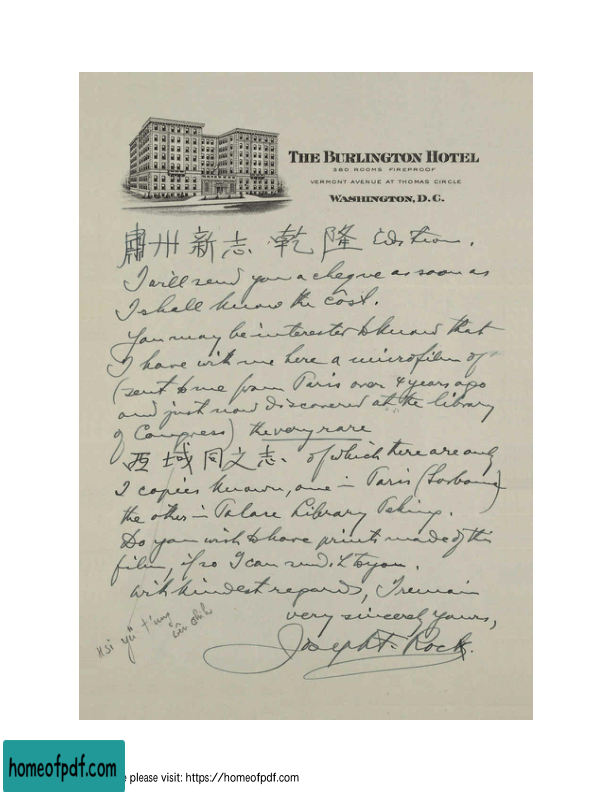 THE BURLINGTON HOTEL
380 ROOMS FIREPROOF
VERMONT AVENUE AT THOMAS CIRCLE
WASHINGTON, D.C.
肅州新志 乾隆 Edition.
I will send you a cheque as soon as
I shall know the cost.
You may be interested to know that
I have with me here a microfilm of
(sent to me from Paris over 4 years ago
and just now discovered at the library
of Congress) the very rare
西域同文志. of which there are only
2 copies known, one in Paris (Sorbonne)
the other in Palace Library Peking.
Do you wish to have prints made of this
film, if so I can send it to you.
With kindest regards, I remain
very sincerely yours,
Joseph F. Rock.
Hsi yü t'ung
wên chih
homeofpdf.com
e please visit: https://homeofpdf.com